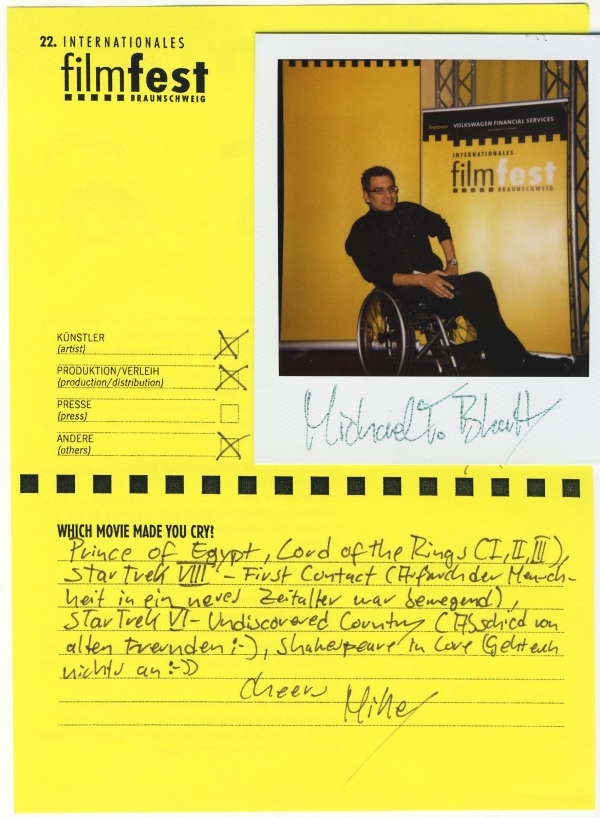 22. INTERNATIONALES
filmfest
BRAUNSCHWEIG
VOLKSWAGEN FINANCIAL SERVICES
INTERNATIONALES
filmfest
BRAUNSCHWEIG
KÜNSTLER
(artist)
PRODUKTION/VERLEIH
(production/distribution)
PRESSE
(press)
ANDERE
(others)
Michael T. Bhatt
WHICH MOVIE MADE YOU CRY?
Prince of Egypt, Lord of the Rings (I, II, III),
Star Trek VIII - First Contact (Aufbruch der Mensch-
heit in ein neues Zeitalter war bewegend),
Star Trek VI - Undiscovered Country (Abschied von
alten Freunden ;-), Shakespeare in Love (Geht euch
nichts an :-))
Cheers
Mike